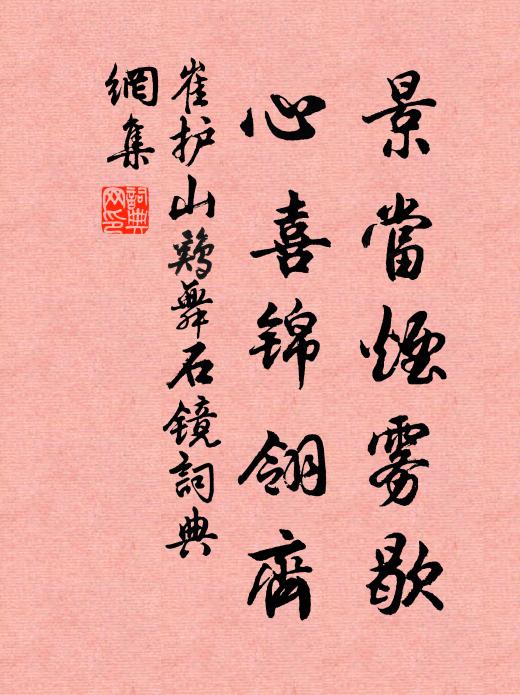 景當煙雾歇
心喜锦翎齊
崔护山鷄舞石镜詞典
網集
詞典
网印